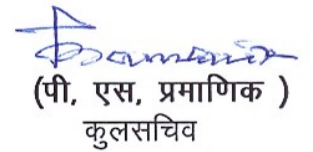 (पी, एस, प्रमाणिक )
कुलसचिव